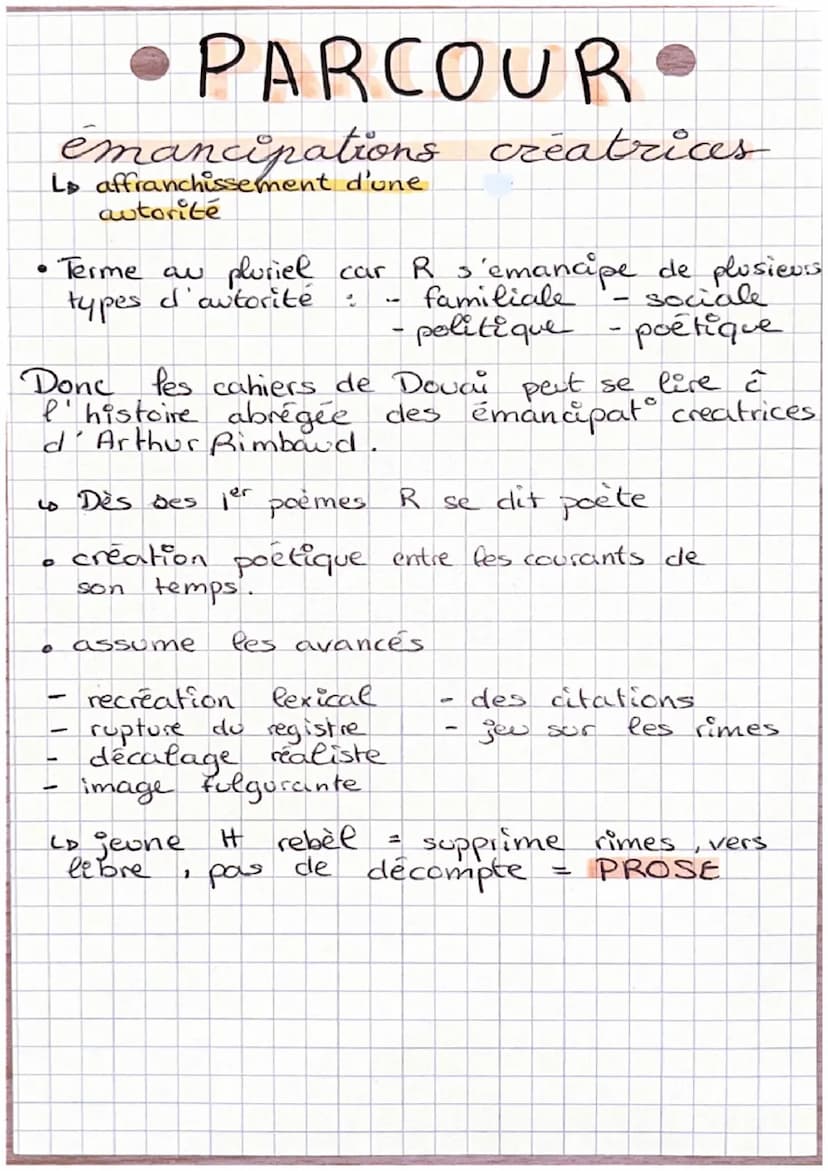 • PARCOUR •
émancipations créatrices
↳ affranchissement d'une
autorité
• Terme au pluriel car R s'emancipe de plusieurs
types d'autorité : - familiale - sociale
- politique - poétique
Donc les cahiers de Douai peut se lire ĉ
l'histoire abrégée des émancipat° creatrices
d'Arthur Rimbaud.
↳ Dès ses 1er poèmes R se dit poète
• création poétique entre les courants de
son temps.
• assume les avancés
- recréation lexical - des citations
- rupture du registre - jeu sur les rimes
- décalage réaliste
- image fulgurante
↳ jeune H rebèl = supprime rimes, vers
libre, pas de décompte = PROSE